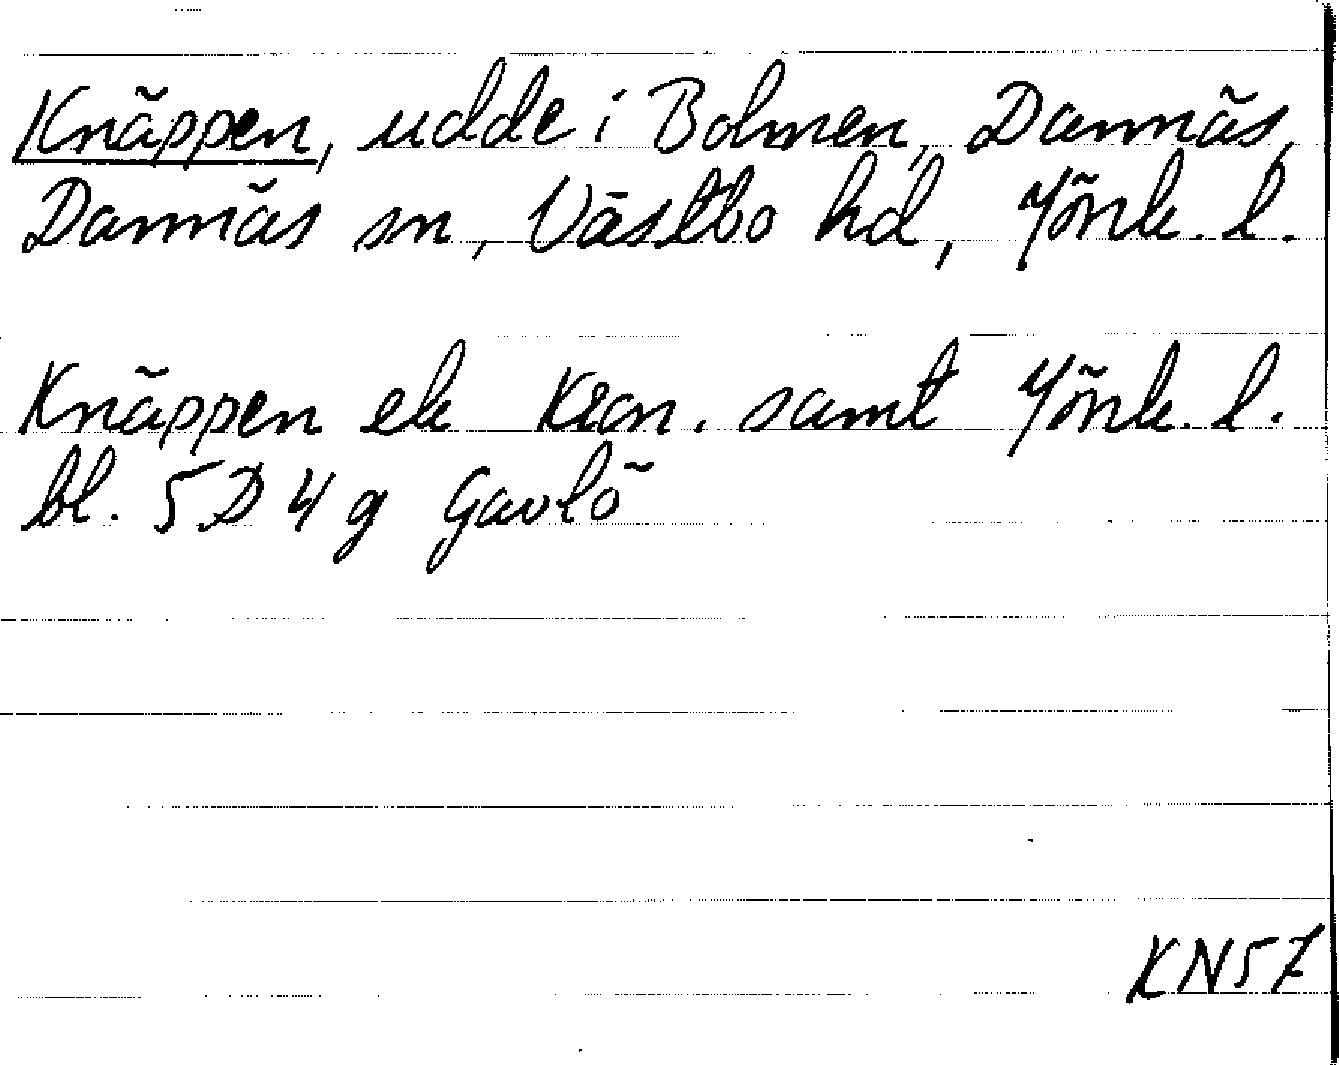 Knäppen, udde i Bolmen, Dannäs,
Dannäs sn, Västbo hd, Jönk. l.
Knäppen ek Kron. samt Jönk. l.
bl. 5D 4 g Gavlö
KN57